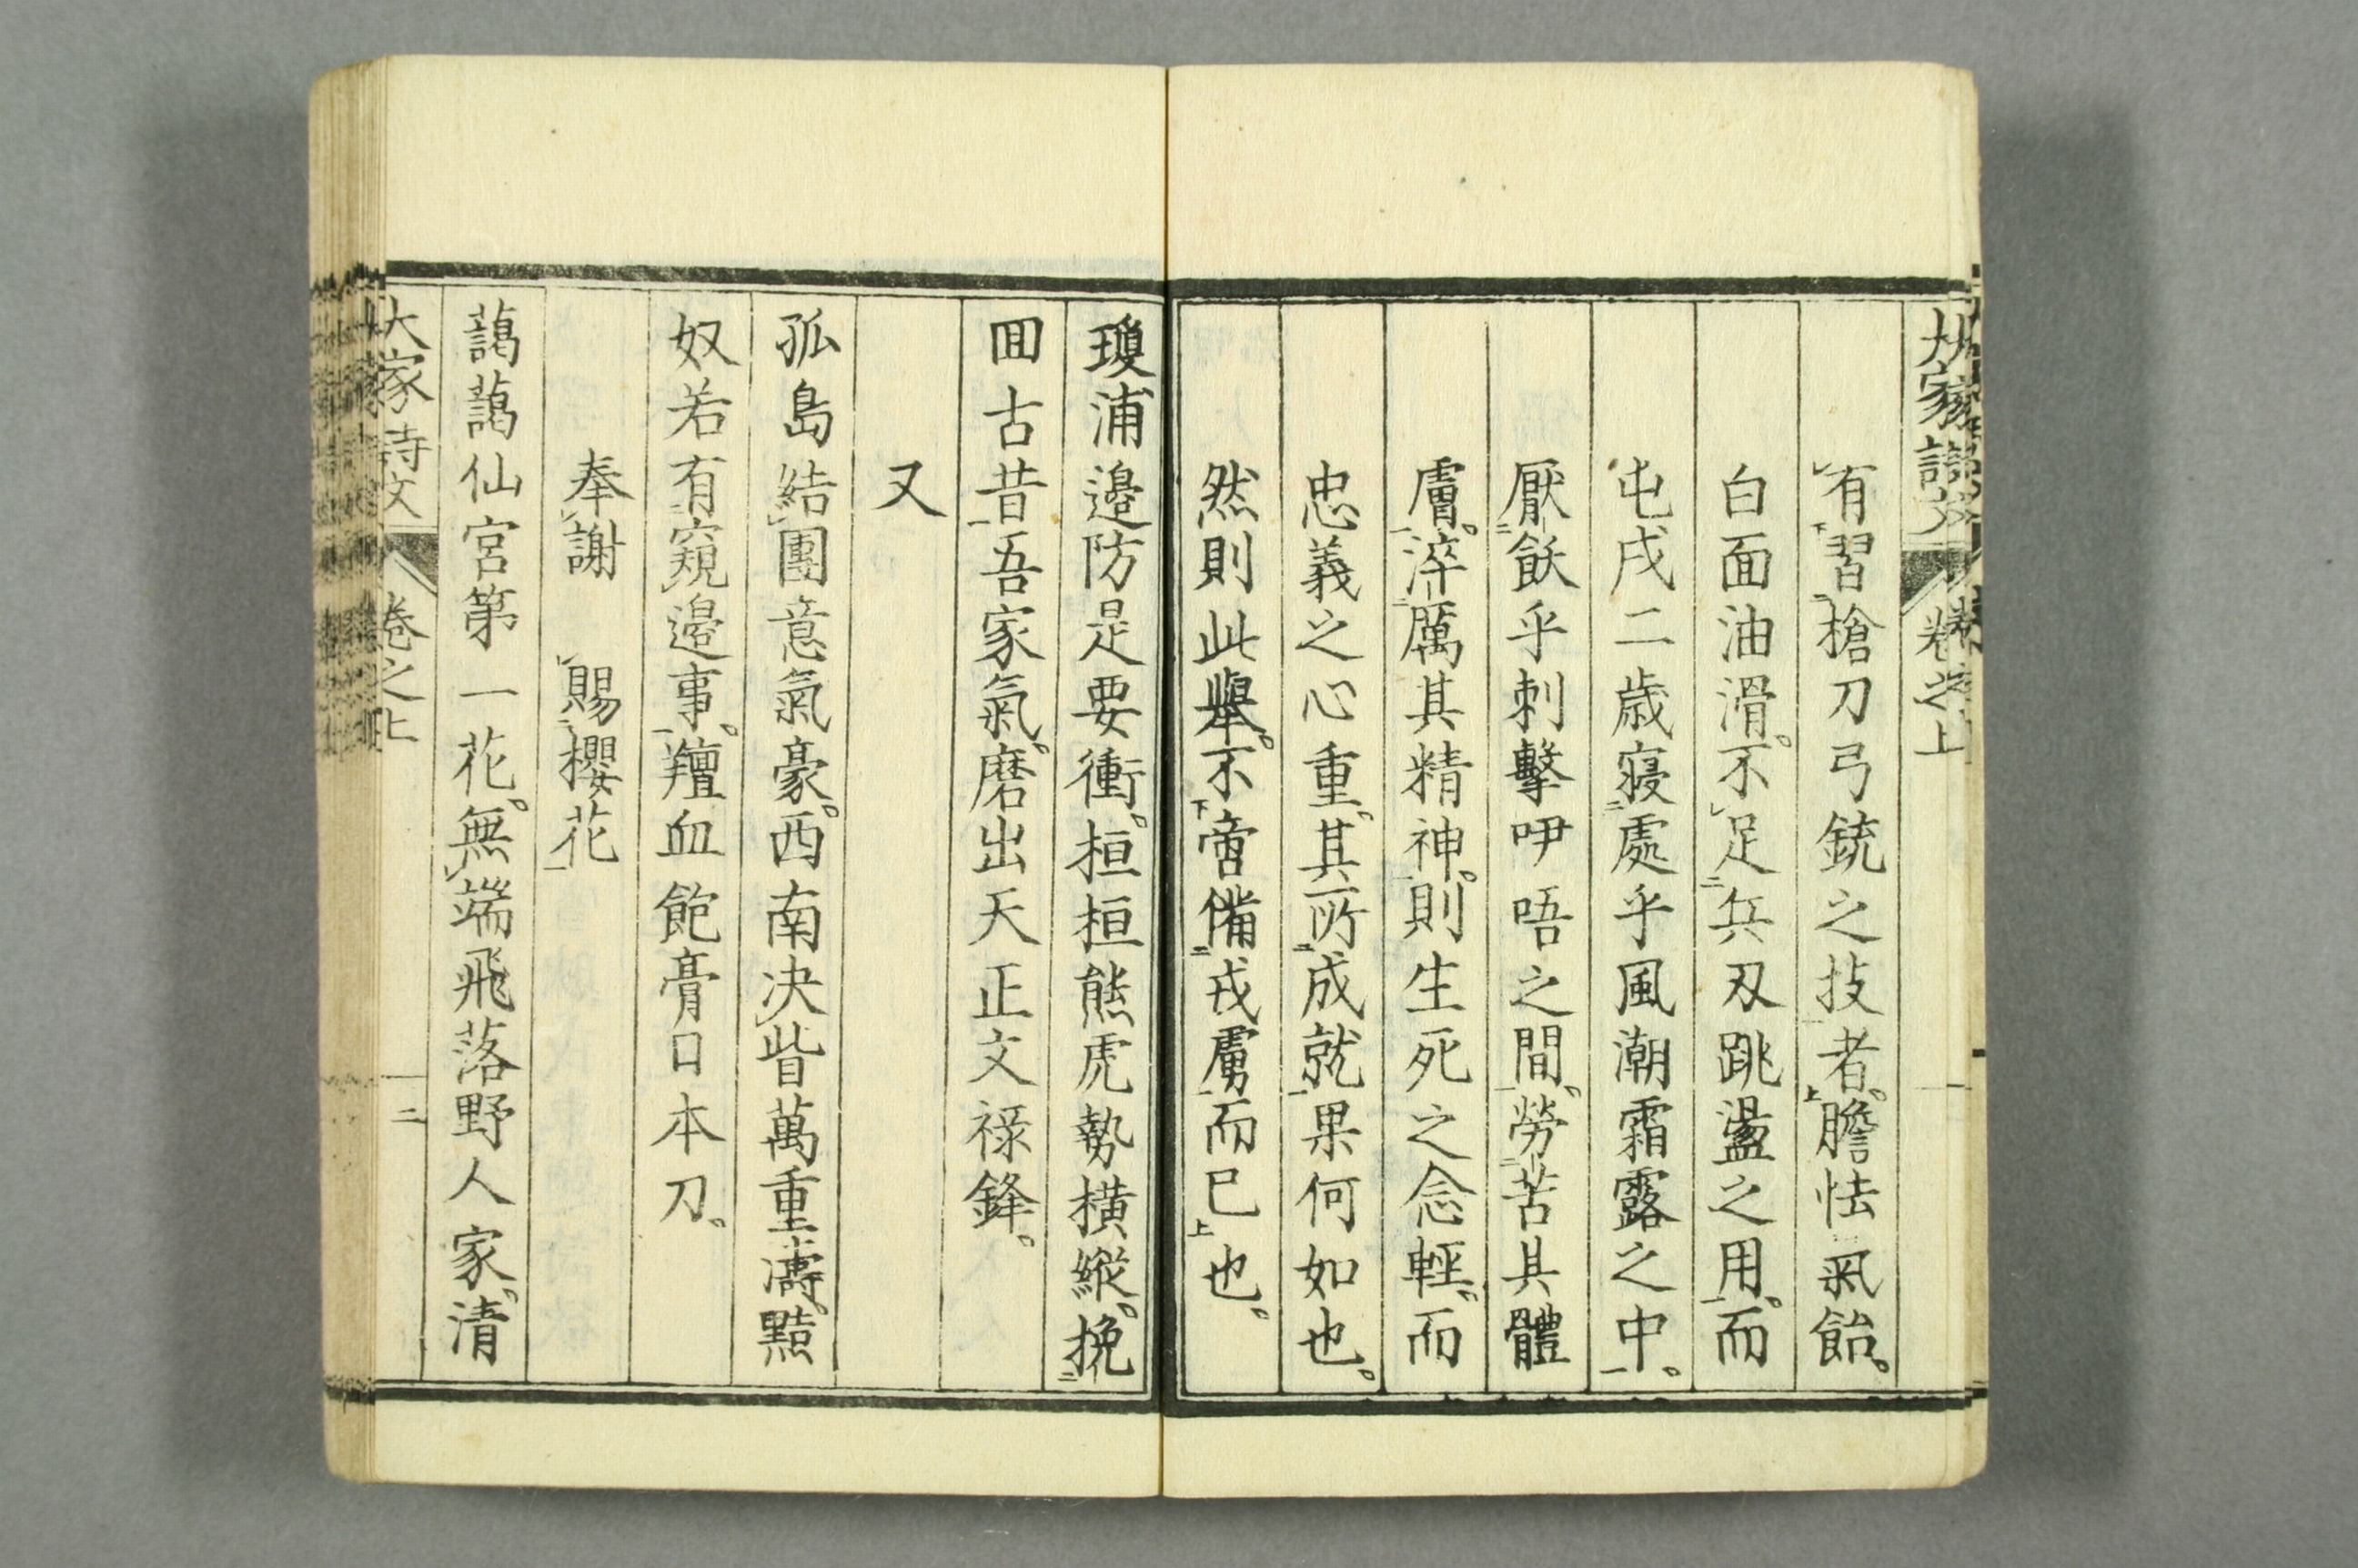 有習槍刀弓銃之技者。膽怯氣飴。
白面油滑。不足兵刃跳盪之用。而
屯戌二歳寝處乎風潮霜露之中。
厭飫乎刺擊吚唔之間。勞苦其體
膚。淬厲其精神。則生死之念輕。而
忠義之心重。其所成就果何如也。
然則此舉。不啻備戎虜而已也。
瓊浦邊防是要衝。桓桓熊虎勢橫縱。挽
囬古昔吾家氣。磨出天正文祿鋒。
又
孤島結團意氣豪。西南决眥萬重濤。黠
奴若有窺邊事。羶血飽膏日本刀。
奉謝 賜櫻花
藹藹仙宮第一花。無端飛落野人家。清
大家詩文 卷之上 二